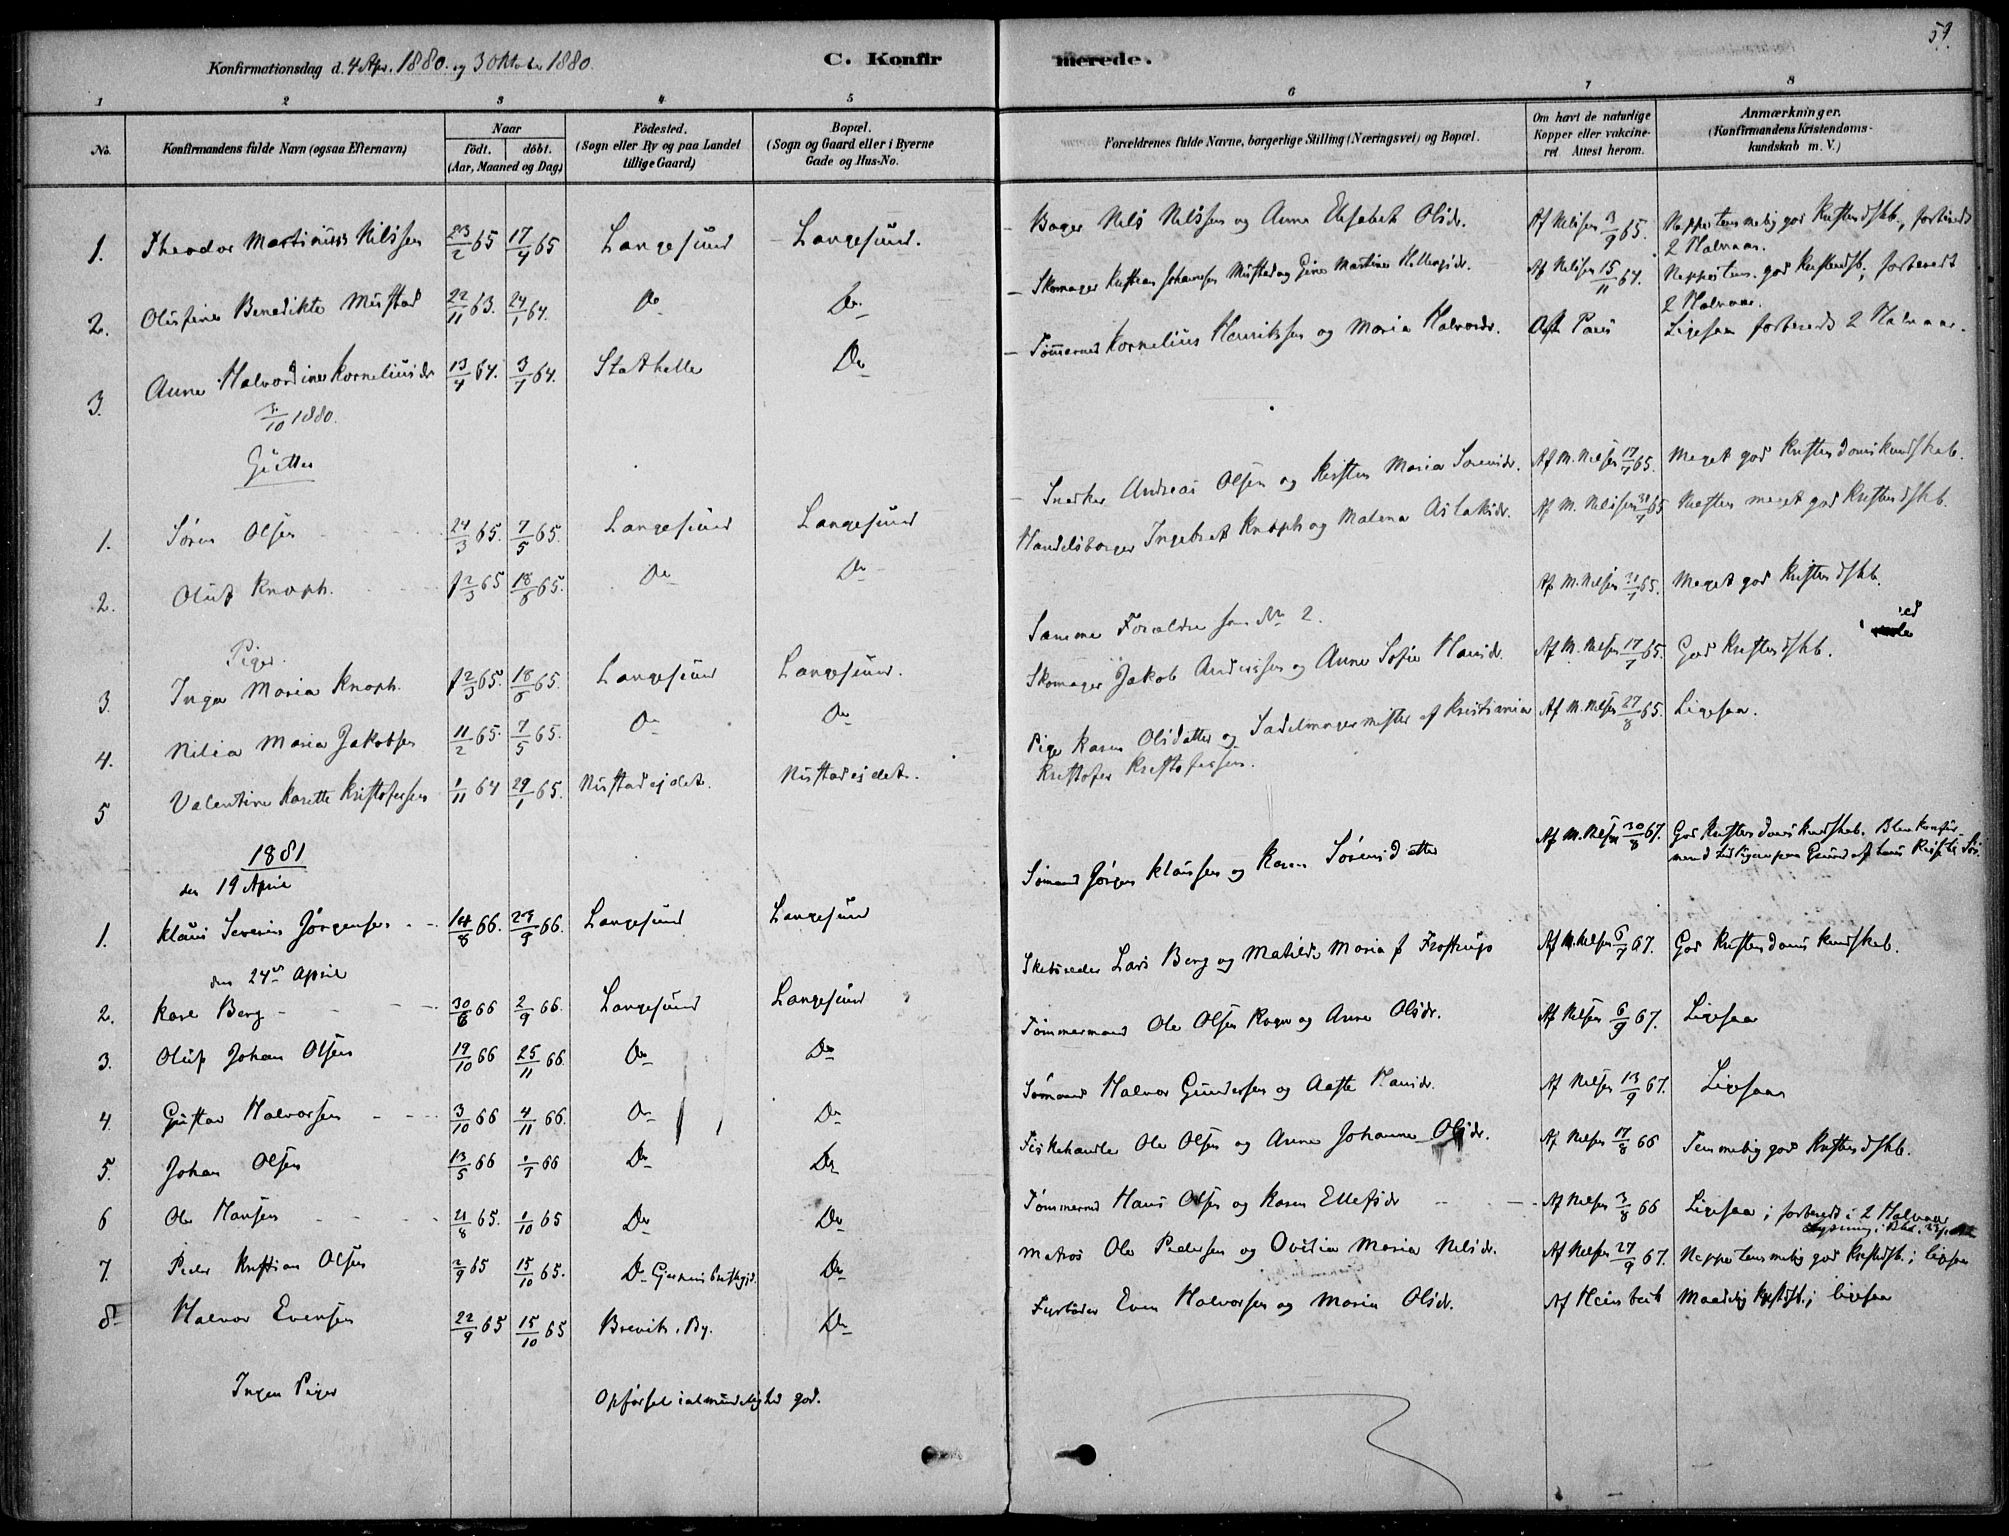 59.
Konfirmationsdag d. 4 Apr. 1880. og 3 Oktober 1880.
C. Konfirmerede.
1 2 3 4 5 6 7 8
No.
Konfirmandens fulde Navn (ogsaa Efternavn)
Naar
födt. döbt.
(Aar, Maaned og Dag)
Födested.
(Sogn eller By og paa Landet
tillige Gaard)
Bopæl.
(Sogn og Gaard eller i Byerne
Gade og Hus-No.
Forældrenes fulde Navne, borgerlige Stilling (Næringsvei) og Bopæl.
Om havt de naturlige
Kopper eller vakcine-
ret Attest herom.
Anmærkninger.
(Konfirmandens Kristendoms-
kundskab m. V.)
1. Theodor Martinius Nilssen 23/2 65 17/4 65 Langesund Langesund. Bager Nils Nilssen og Anne Elisabet Olsdr. Af Nilssen 3/9 65. Neppe temmelig god Kristendskb., forberedt
2 Halvaar.
2. Olistine Benedikte Mustad 22/11 63. 24/1 64. Do Do Skomager Kristian Johannesen Mustad og Gine Martine Hellesdr. Af Nilssen 15/11 64. Neppe tem. god Kristendskb.; forberedt
2 Halvaar.
3. Anne Halvordine Korneliusdr 13/4 64. 3/7 64. Stathelle Do Tømmermd Kornelius Henriksen og Maria Halvorsdr. Aft Paus Ligesaa forberedt 2 Halvaar.
3/10 1880.
Gutter
1. Søren Olsen 24/3 65. 7/5 65. Langesund Langesund Snedker Andreas Olsen og Kirsten Maria Sørensdr. Af M. Nilsen 17/7 65. Meget god Kristendomskundskab.
2. Oluf Knoph. 12/3 65 18/6 65. Do Do Handelsborger Ingebret Knoph og Malena Aslaksdr. Af M. Nilsen 31/7 65 Næsten meget god Kristendskb
Piger.
3. Inga Maria Knoph. 12/3 65. 18/6 65. Langesund Langesund. Samme Forældre som No 2. Af M. Nilsen 31/7 65. Meget god Kristendskb.
4. Nilia Maria Jakobsen 11/2 65. 7/5 65. Do Do Skomager Jakob Anderssen og Anne Sofie Hansdr. Af M. Nilsen 17/7 65. God Kristendskb.
5 Valentine Karette Kristofersen 1/11 64 29/1 65. Mustadejdet. Mustadejdet. Pige Karen Olsdatter og Sadelmagermester af Kristiania
Kristofer Kristofersen. Af M. Nilsen 27/8 65. Ligesaa.
1881
den 19 April
1. Klaus Severin Jørgensen 14/8 66. 23/9 66. Langesund Langesund Sømand Jørgen Klaussen og Karen Sørensdatter Af M. Nilsen 30/8 67. God Kristendomskundskab. Blev konfir-
den 24de April
2. Karl Berg 30/6 66 2/9 66. Langesund Langesund Skibsreder Lars Berg og Matilde Maria f Frostrup Af M. Nilsen 6/9 67. God Kristendomskundskab.
3. Oluf Johan Olsen 19/10 66 25/11 66. Do Do Tømmermand Ole Olsen Rogn og Anne Olsdr. Af Nilsen 6/9 67. Ligesaa
4. Gustav Halvorsen 3/10 66 4/11 66. Do Do Sømand Halvor Gundersen og Aaste Hansdr. Af Nilsen 13/9 67. Ligesaa
5. Johan Olsen 13/5 66 1/7 66 Do Do Fiskehandler Ole Olsen og Anne Johanne Olsdr. Af Nilsen 17/8 66 Temmelig god Kristendskb.
6 Ole Hansen 21/8 65. 1/10 65 Do Do Tømmermd Hans Olsen og Karen Ellefsdr Af Nilsen 3/8 66 Ligesaa; forberedt i 2 Halvaar
7. Peder Kristian Olsen 2/9 65 15/10 65. Do Do Matros Ole Pedersen og Ovidia Maria Nilsdr. Af Nilsen 27/9 67. Neppe temmelig god Kristdskb.; ligesaa
8 Halvor Evensen 22/9 65 15/10 65 Brevik By. Do Fyrbøder Even Halvorsen og Maria Olsdr. Af Heimbeck Maadelig Kristdskb.; ligesaa
Ingen Piger
Opførsel i almindelighed god.